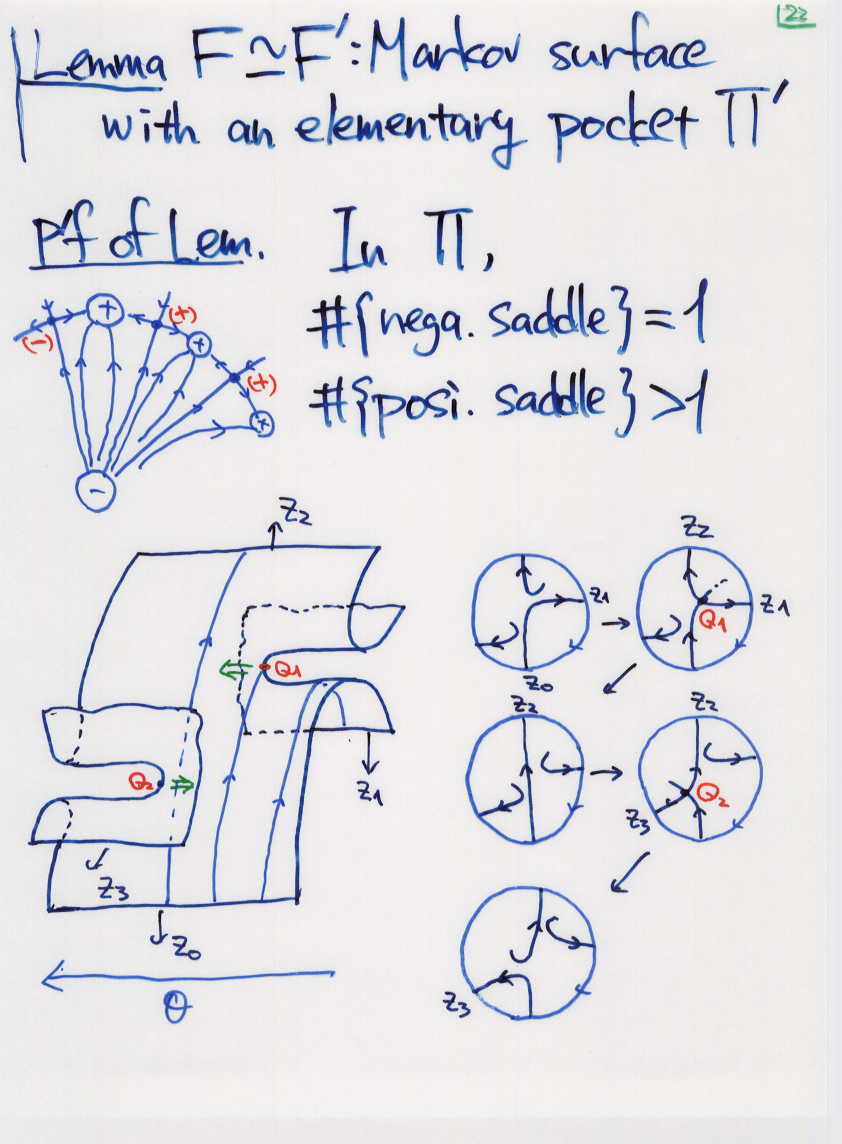 22
Lemma F ≃ F′: Markov surface
with an elementary pocket Π′
Pf of Lem. In Π,
#{nega. saddle} = 1
#{posi. saddle} > 1
+
(+)
(-)
+
(+)
+
-
Z2
Q1
Z1
Q2
Z3
Z0
θ
Z1
Z0
Z2
Z1
Q1
Z2
Z2
Q2
Z3
Z3